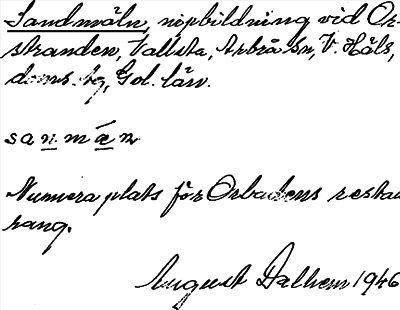 Sandmäln, nipbildning vid Or-
stranden, Vallsta, Arbrå sn, V. Häls,
doms. hg, Gvl. län.
sanmän
Numera plats för Orbadens restau
rang.
August Dalhem 1946